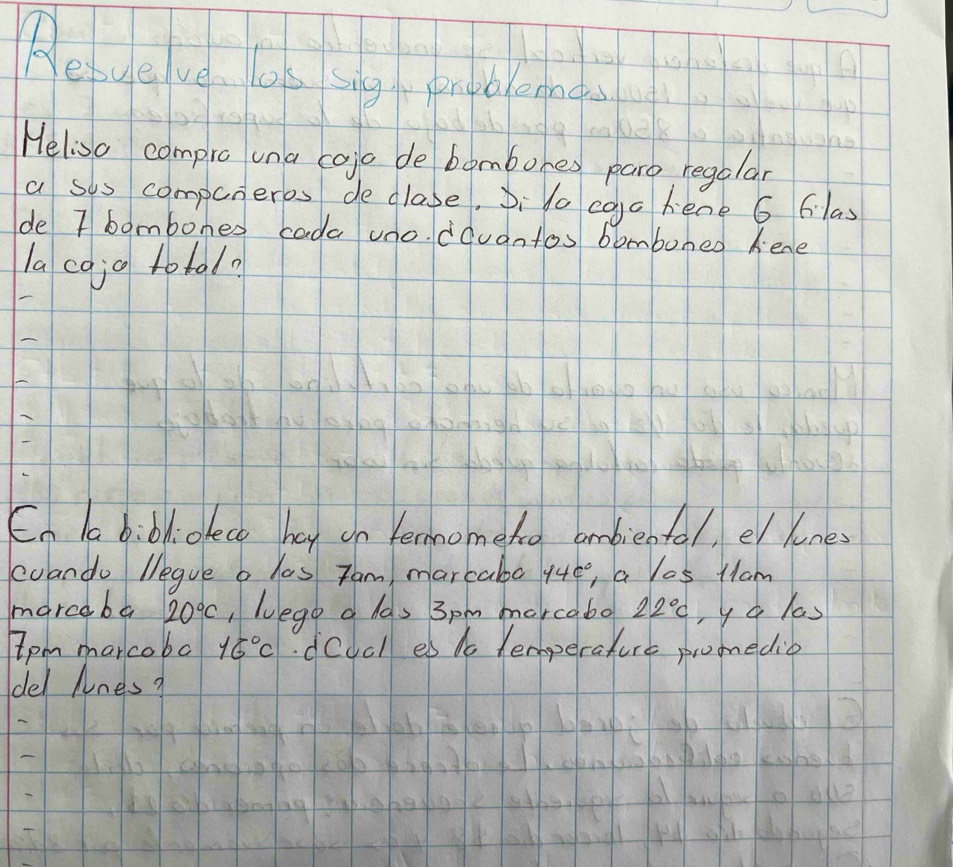 Resuelve los sig. problemas.
Melisa compro una caja de bombones para regalar
a sus compañeros de clase. Si la caja tiene 6 filas
de 7 bombones cada uno. ¿Cuantos bombones tiene
la caja total?
-
-
-
-
-
-
En la biblioteca hay un termometro ambiental, el lunes
cuando llegue a las 7am, marcaba 14c°, a las 11am
marcaba 20°c, luego a las 3pm marcaba 22°c, y a las
7pm marcaba 16°c. ¿Cual es la temperatura promedio
del lunes?
-
-
-
-